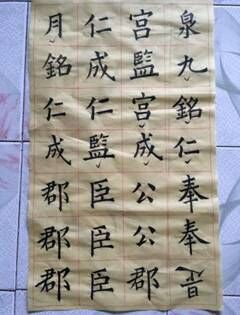 泉九銘仁奉奉
宫監宫成公公郡
仁成仁監臣臣臣
月銘仁成郡郡郡